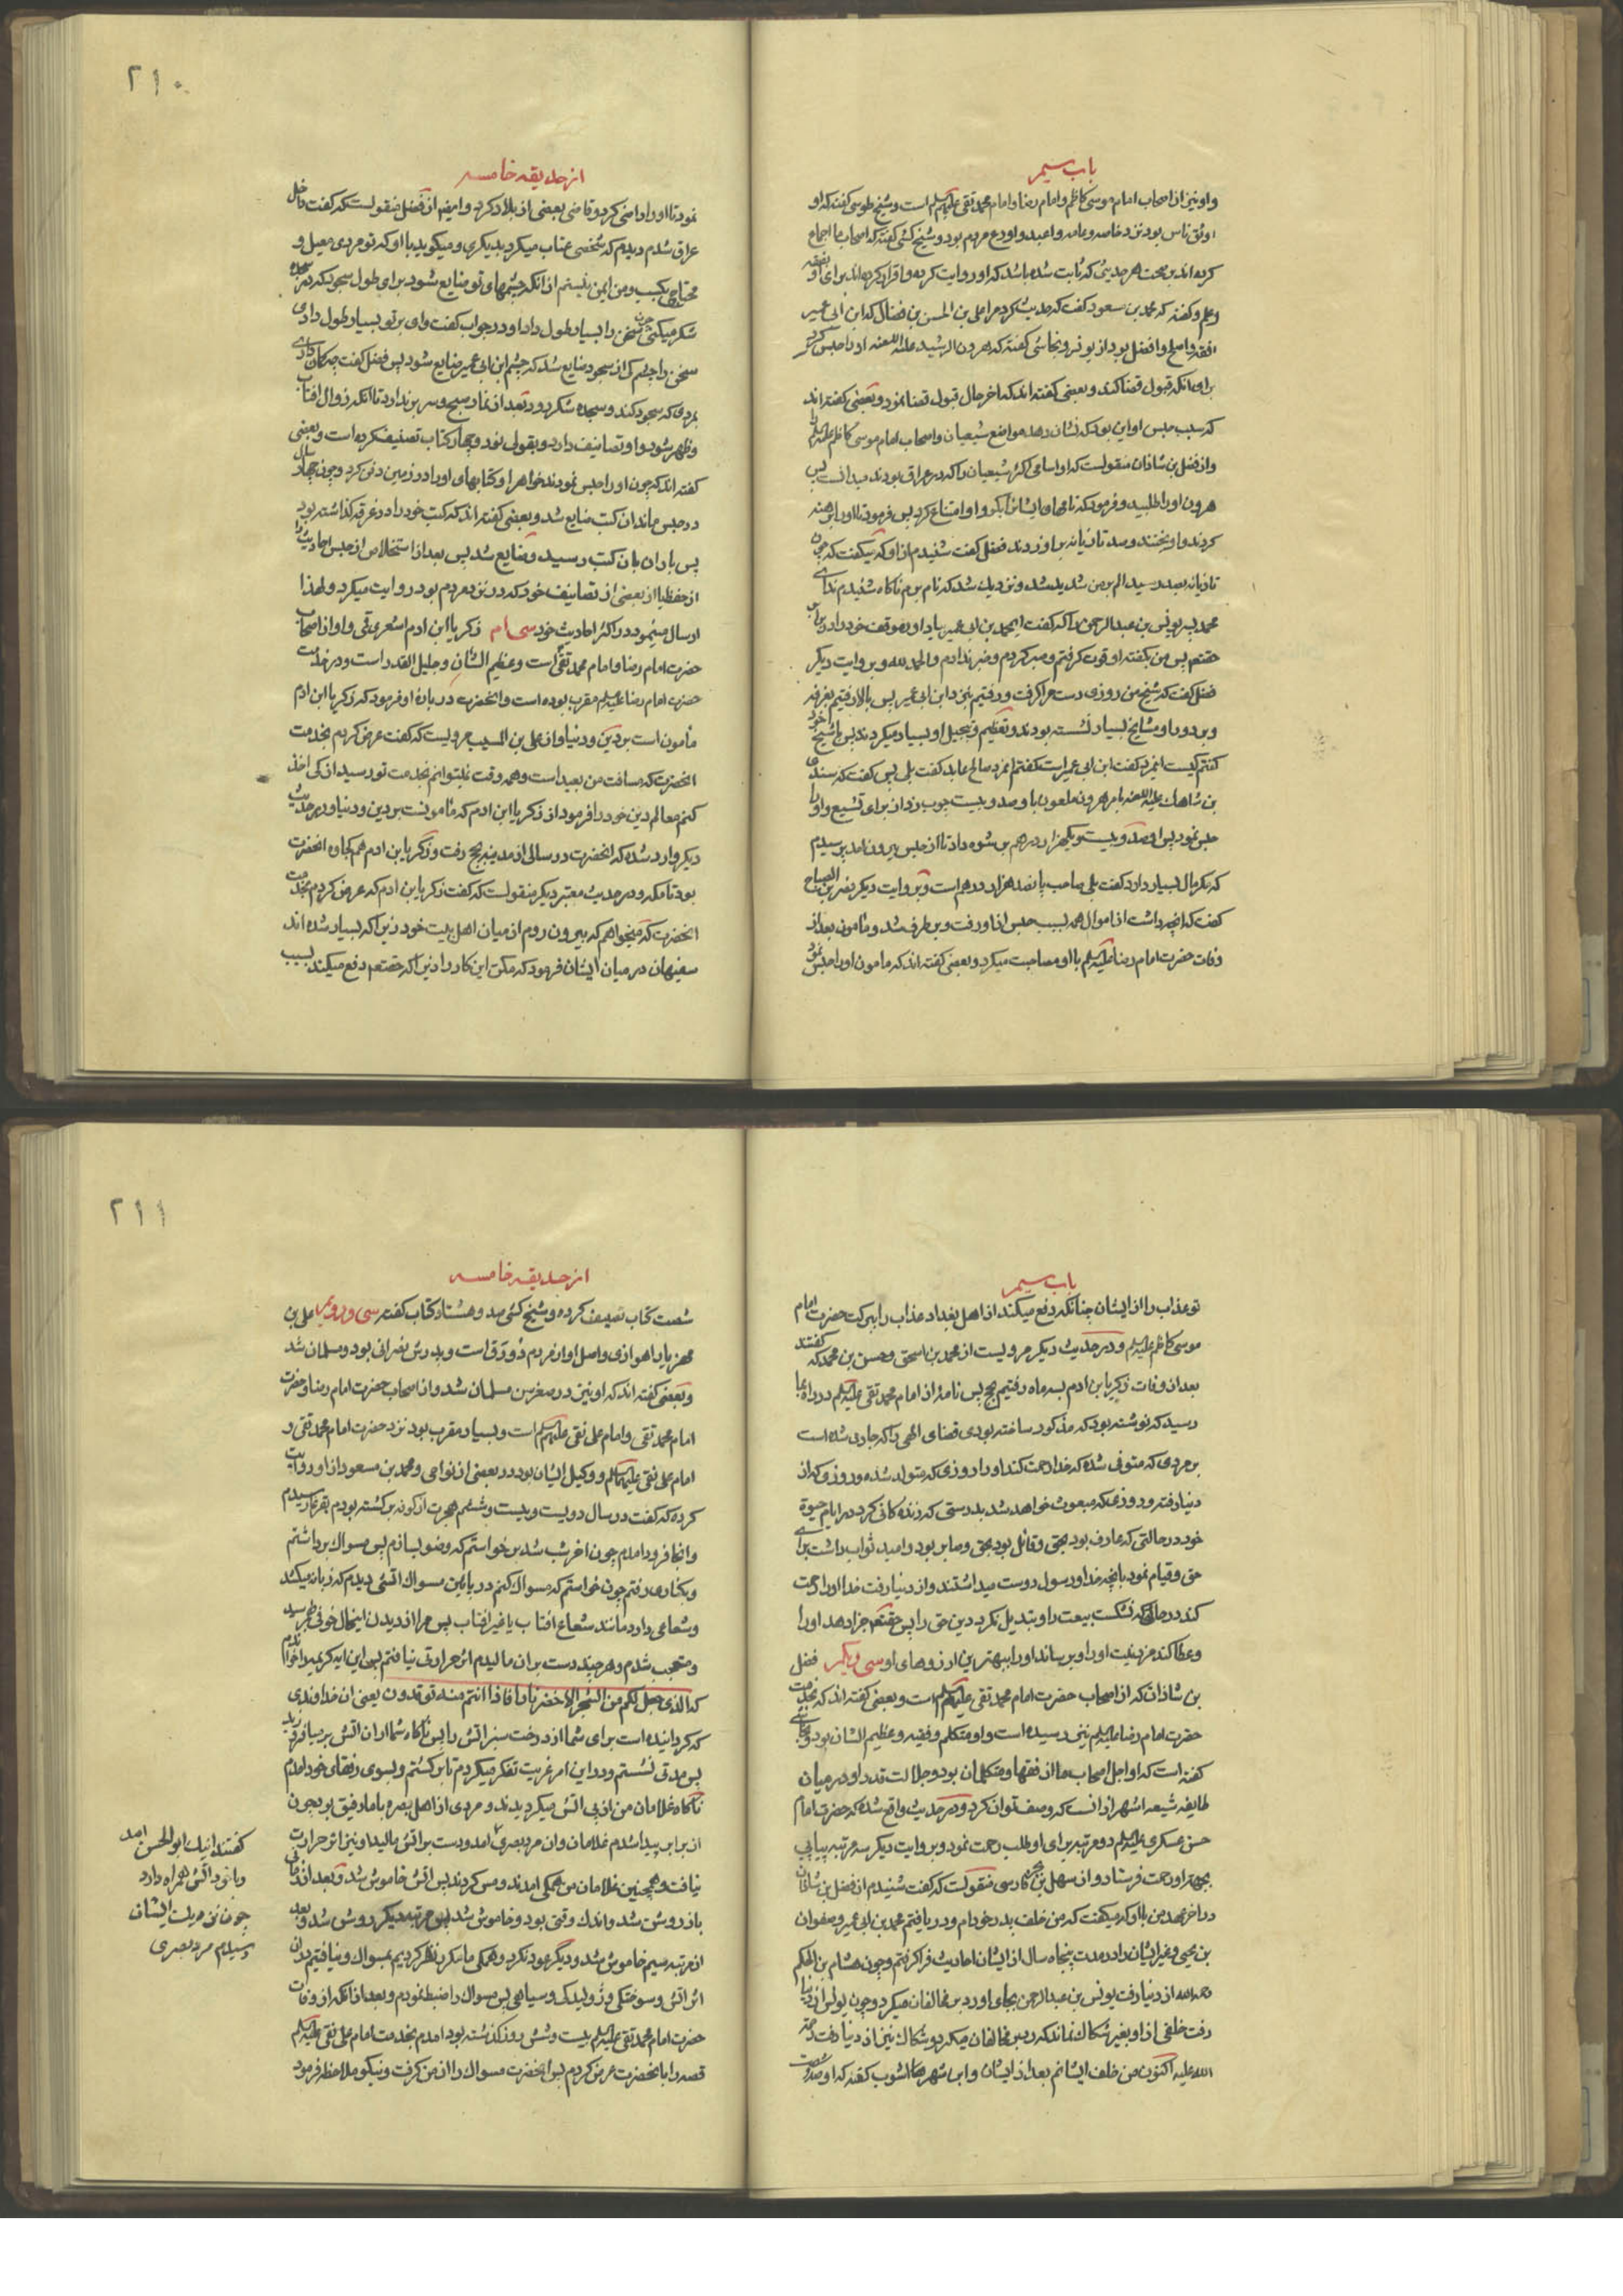 باب سیم
و او نیز از اصحاب امام موسی کاظم و امام رضا و امام محمد تقی علیهم السلم است و شیخ طوسی گفته که او
اوثق ناس بود نزد خاصه و عامه و اعبد و اورع مردم بود و شیخ کشی گفته که اصحاب ما اجماع
کرده‌اند بر صحت هر حدیثی که ثابت شده باشد که او روایت کرده و اقرار کرده‌اند برای او بفقه
و علم و گفته که محمد بن مسعود گفت که حدیث کرد مرا علی بن الحسن بن فضال که ابن ابی عمیر
افقه و اصلح و افضل بود از یونس و نجاشی گفته که هرون الرشید علیه اللعنه او را حبس کرد
برای انکه قبول قضا کند و بعضی گفته‌اند که اخر حال قبول قضا نمود و بعضی گفته‌اند
که سبب حبس او این بود که نشان دهد مواضع شیعیان و اصحاب امام موسی کاظم علیه السلم را
و از فضل بن شاذان منقولست که او اسامی اکثر شیعیان را که در عراق بودند میدانست پس
هرون او را طلبید و فرمود که نامهای ایشان را بگو و او امتناع کرد پس فرمود تا او را برهنه
کردند و اویختند و صد تازیانه بر او زدند فضل گفت شنیدم از او که میگفت که چون
تازیانه بصد رسید الم بر من شدید شد و نزدیک شد که نام برم ناگاه شنیدم ندای
محمد پسر یونس بن عبدالرحمن را که گفت ای محمد بن ابی عمیر یاد اور موقف خود را در پیش
حقتعم پس من بگفته او قوت گرفتم و صبر کردم و ضرر ندادم و الحمد لله و بروایت دیگر
فضل گفت که شیخ من روزی دست مرا گرفت و رفتیم بنزد ابن ابی عمیر پس بالا رفتیم بغرفه
و بر دور او مشایخ بسیار نشسته بودند و تعظیم و تبجیل او بسیار میکردند پس با شیخ خود
گفتم کیست اینمرد گفت ابن ابی عمیر است گفتم انمرد صالح عابد گفت بلی پس گفت که سندی
بن شاهک علیه اللعنه بامر هرون ملعون باو صد و بیست چوب زد از برای تشیع و او را
حبس نمود پس او صد و بیست و یکهزار درهم برشوه داد تا از حبس بیرون امد پرسیدم
که مگر مال بسیار دارد گفت بلی صاحب پانصد هزار درهم است و بروایت دیگر نصر بن الصباح
گفت که انچه داشت از اموال همه بسبب حبس از او رفت و برطرف شد و مامون بعد از
وفات حضرت امام رضا علیه السلم با او مصاحبت میکرد و بعضی گفته‌اند که مامون او را حبس نمود
٢١٠
از حدیقه خامسه
نمود تا او را راضی کرد و قاضی بعضی از بلاد کرد و ایضا از فضل منقولست که گفت داخل
عراق شدم دیدم که شخصی عتاب میکرد بدیگری و میگوید با او که تو مردی معیل و
محتاج بکسب و من ایمن نیستم از انکه چشمهای تو ضایع شود برای طول سجودی که در سجده
شکر میکنی چون سخن را بسیار طول داد او در جواب گفت وای بر تو بسیار طول دادی
سخن را چشم کی از سجود ضایع شد که چشم ابن ابی عمیر ضایع شود پس فضل گفت چه گمان داری
بمردی که سجود کند و سجده شکر در بعد از نماز صبح و سر برندارد تا انکه زوال افتاب
و ظهر شود و او تصانیف دارد و بقولی نود و چهار کتاب تصنیف کرده است و بعضی
گفته‌اند که چون او را حبس نمودند خواهر او کتابهای او را در زمین دفن کرد و چون چهار سال
در حبس ماند ان کتب ضایع شد و بعضی گفته‌اند که کتب خود را در غرفه گذاشته بود
پس باران بان کتب رسید و ضایع شد پس بعد از استخلاص از حبس احادیث را
از حفظ یا از بعضی از تصانیف خود که در نزد مردم بود روایت میکرد و لهذا
ارسال مینمود در اکثر احادیث خود سی ام زکریا ابن ادم اشعری قمی و او از اصحاب
حضرت امام رضا و امام محمد تقی است و عظیم الشان و جلیل القدر است و در خدمت
حضرت امام رضا علیه السلم مقرب بوده است و انحضرت در باره او فرمود که زکریا ابن ادم
مامون است بر دین و دنیا و از علی بن المسیب مرویست که گفت عرض کردم بخدمت
انحضرت که مسافت من بعید است و همه وقت نمیتوانم بخدمت تو رسید از کی اخذ
کنم معالم دین خود را فرمود از زکریا ابن ادم که مامونست بر دین و دنیا و در حدیث
دیگر وارد شده که انحضرت در سالی از مدینه بحج رفت و زکریا بن ادم هم کجاوه انحضرت
بود تا مکه و در حدیث معتبر دیگر منقولست که گفت زکریا بن ادم که عرض کردم بخدمت
انحضرت که میخواهم که بیرون روم از میان اهل بیت خود زیرا که بسیار شده‌اند
سفیهان در میان ایشان فرمود که مکن این کار را زیرا که حقتعم دفع میکند بسبب
باب سیم
تو عذاب را از ایشان چنانکه دفع میکند از اهل بغداد عذاب را ببرکت حضرت امام
موسی کاظم علیه السلم و در حدیث دیگر مرویست از محمد بن اسحق و حسن بن محمد که گفتند
بعد از وفات زکریا بن ادم بسه ماه رفتیم بحج پس نامهٔ از امام محمد تقی علیه السلم در راه بما
رسید که نوشته بود که مذکور ساخته بودی قضای الهی را که جاری شده است
بر مردی که متوفی شده که خدا رحمت کند او را روزی که متولد شده و روزی که از
دنیا رفته و روزی که مبعوث خواهد شد بدرستی که زنده کانی کرد در ایام حیوة
خود در حالتی که عارف بود بحق و قائل بود بحق و صابر بود و امید ثواب داشت برای
حق و قیام نمود بانچه خدا و رسول دوست میداشتند و از دنیا رفت خدا او را رحمت
کند در حالتی که نشکست بیعت را و تبدیل نکرد دین حق را پس حقتعم جزا دهد او را
و عطا کند مزد نیت او را و برساند او را ببهترین ارزوهای او سی و یکم فضل
بن شاذان که از اصحاب حضرت امام محمد تقی علیه السلم است و بعضی گفته‌اند که بخدمت
حضرت امام رضا علیه السلم نیز رسیده است و او متکلم و فقیه و عظیم الشان بود و نجاشی
گفته است که او اجل اصحاب ما از فقها و متکلمان بود و جلالت قدر او در میان
طایفه شیعه اشهر از انست که وصف توان کرد و در حدیث واقع شده که حضرت امام
حسن عسکری علیه السلم دو مرتبه برای او طلب رحمت نمود و بروایت دیگر سه مرتبه پیاپی
بجهة او رحمت فرستاد و از سهل بن بحر فارسی منقولست که گفت شنیدم از فضل بن شاذان
در اخر عهد من با او که میگفت که من خلف بدر خودام و دریافتم محمد بن ابی عمیر و صفوان
بن یحیی و غیر ایشان را در مدت پنجاه سال از ایشان احادیث فرا گرفتم و چون هشام بن الحکم
رحمه الله از دنیا رفت یونس بن عبدالرحمن بجای او رد بر مخالفان میکرد و چون یونس از دنیا
رفت خلفی از او بغیر سکاک نماند که رد بر مخالفان میکرد و سکاک نیز از دنیا رفت رحمة
الله علیه اکنون من خلف ایشانم بعد از ایشان و ابن شهر اشوب گفته که او صد و شصت
٢١١
از حدیقه خامسه
شصت کتاب تصنیف کرده و شیخ کشی صد و هشتاد کتاب گفته سی و دویم علی بن
مهزیار اهوازی و اصل او از مردم دورق است و پدرش نصرانی بود و مسلمان شد
و بعضی گفته‌اند که او نیز در صغر سن مسلمان شد و از اصحاب حضرت امام رضا و حضرت
امام محمد تقی و امام علی نقی علیهم السلم است و بسیار مقرب بود نزد حضرت امام محمد تقی و
امام علی نقی علیهما السلم و وکیل ایشان بود در بعضی از نواحی و محمد بن مسعود از او روایت
کرده که گفت در سال دویست و بیست و ششم هجرت از کوفه برگشته بودم بقرعا رسیدم
و انجا فرود امدم چون اخر شب شد برخواستم که وضو بسازم پس مسواک برداشتم
و بکناری رفتم چون خواستم که مسواک کنم در پائین مسواک اتشی دیدم که زبانه میکشد
و شعاعی دارد مانند شعاع افتاب یا غیر افتاب پس مرا از دیدن اینحال خوفی بهم رسید
و متعجب شدم و هر چند دست بر ان مالیدم اثر حرارتی نیافتم پس این ایه کریمه را خواندم
که الذی جعل لکم من الشجر الاخضر نارا فاذا انتم منه توقدون یعنی ان خداوندی
که گردانیده است برای شما از درخت سبز اتش را پس ناگاه شما از ان اتش بر میافروزید
پس مدتی نشستم و در این امر غریب تفکر میکردم تا برگشتم و بسوی رفقای خود امدم
ناگاه غلامان من از پی اتش میگردیدند و مردی از اهل بصره با ما رفیق بود چون
از برابر پیدا شدم غلامان و ان مرد بصری امد و دست بر اتش مالید او نیز اثر حرارت
نیافت و همچنین غلامان من همگی امدند و مس کردند پس اتش خاموش شد و بعد از زمانی
باز روشن شد و اندک وقتی بود و خاموش شد پس مرتبه دیگر روشن شد و بعد
از مرتبه سیم خاموش شد و دیگر عود نکرد و همگی ما مکرر نظر کردیم بمسواک و نیافتیم در ان
اثر اتش و سوختگی و ژولیدگی و سیاهی پس مسواک را ضبط نمودم و بعد از انکه از وفات
حضرت امام محمد تقی علیه السلم بیست و شش روز گذشته بود امدم بخدمت امام علی نقی علیه السلم
قصه را بانحضرت عرض کردم پس انحضرت مسواک را از من گرفت و نیکو ملاحظه فرمود
گفتند اینک ابوالحسن امد
و با خود اتش همراه دارد
چون نزدیک ایشان
رسیدم مرد بصری